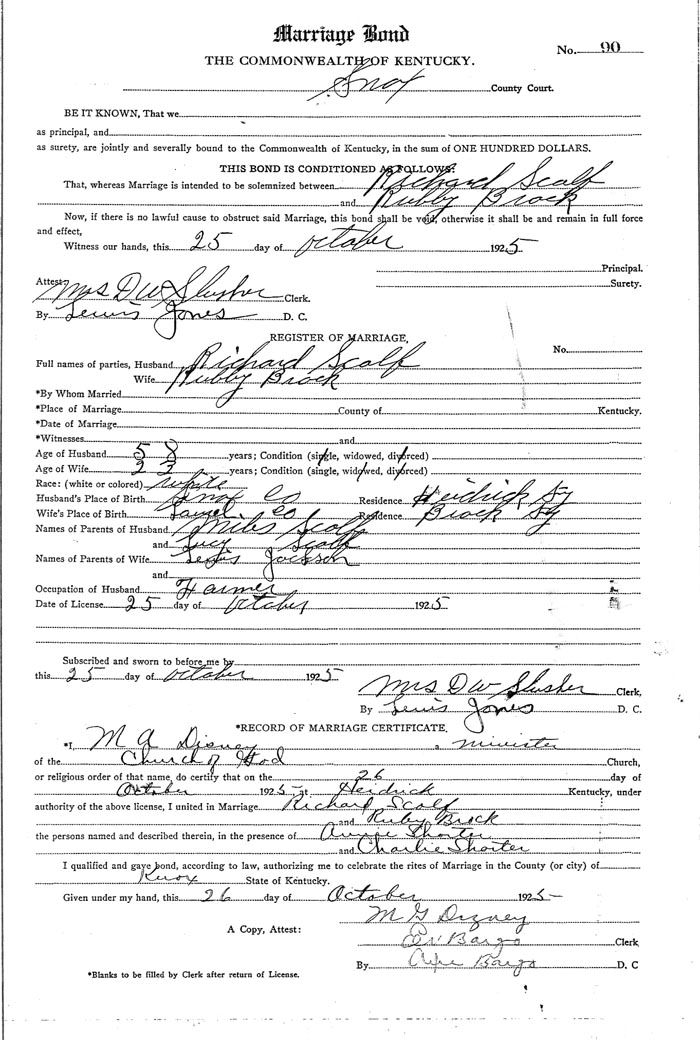 Marriage Bond
No. 90
THE COMMONWEALTH OF KENTUCKY.
Knox County Court.
BE IT KNOWN, That we
as principal, and
as surety, are jointly and severally bound to the Commonwealth of Kentucky, in the sum of ONE HUNDRED DOLLARS.
THIS BOND IS CONDITIONED AS FOLLOWS:
That, whereas Marriage is intended to be solemnized between Richard Scalf
and Rubby Brock
Now, if there is no lawful cause to obstruct said Marriage, this bond shall be void, otherwise it shall be and remain in full force
and effect,
Witness our hands, this 25 day of October 1925
Principal.
Surety.
Attest: Mrs D W Slusher Clerk.
By Lewis Jones D. C.
REGISTER OF MARRIAGE.
No.
Full names of parties, Husband Richard Scalf
Wife Rubby Brock
*By Whom Married
*Place of Marriage County of Kentucky.
*Date of Marriage
*Witnesses and
Age of Husband 58 years; Condition (single, widowed, divorced)
Age of Wife 23 years; Condition (single, widowed, divorced)
Race: (white or colored) white
Husband's Place of Birth Knox Co Residence Heidrick Ky
Wife's Place of Birth Laurel Co Residence Brock Ky
Names of Parents of Husband Miles Scalf
and Lucy Scalf
Names of Parents of Wife Lewis Jackson
and
Occupation of Husband Farmer
Date of License 25 day of October 1925
Subscribed and sworn to before me by
this 25 day of October 1925
Mrs D W Slusher Clerk,
By Lewis Jones D. C.
*RECORD OF MARRIAGE CERTIFICATE.
*I, M A Disney, a minister
of the Church of God Church,
or religious order of that name, do certify that on the 26 day of
October 1925 at Heidrick Kentucky, under
authority of the above license, I united in Marriage Richard Scalf
and Ruby Brock
the persons named and described therein, in the presence of Shorter
and Charlie Shorter
I qualified and gave bond, according to law, authorizing me to celebrate the rites of Marriage in the County (or city) of
Knox State of Kentucky.
Given under my hand, this 26 day of October 1925
M G Dizney
A Copy, Attest: Bargo Clerk
By Bargo D. C
*Blanks to be filled by Clerk after return of License.